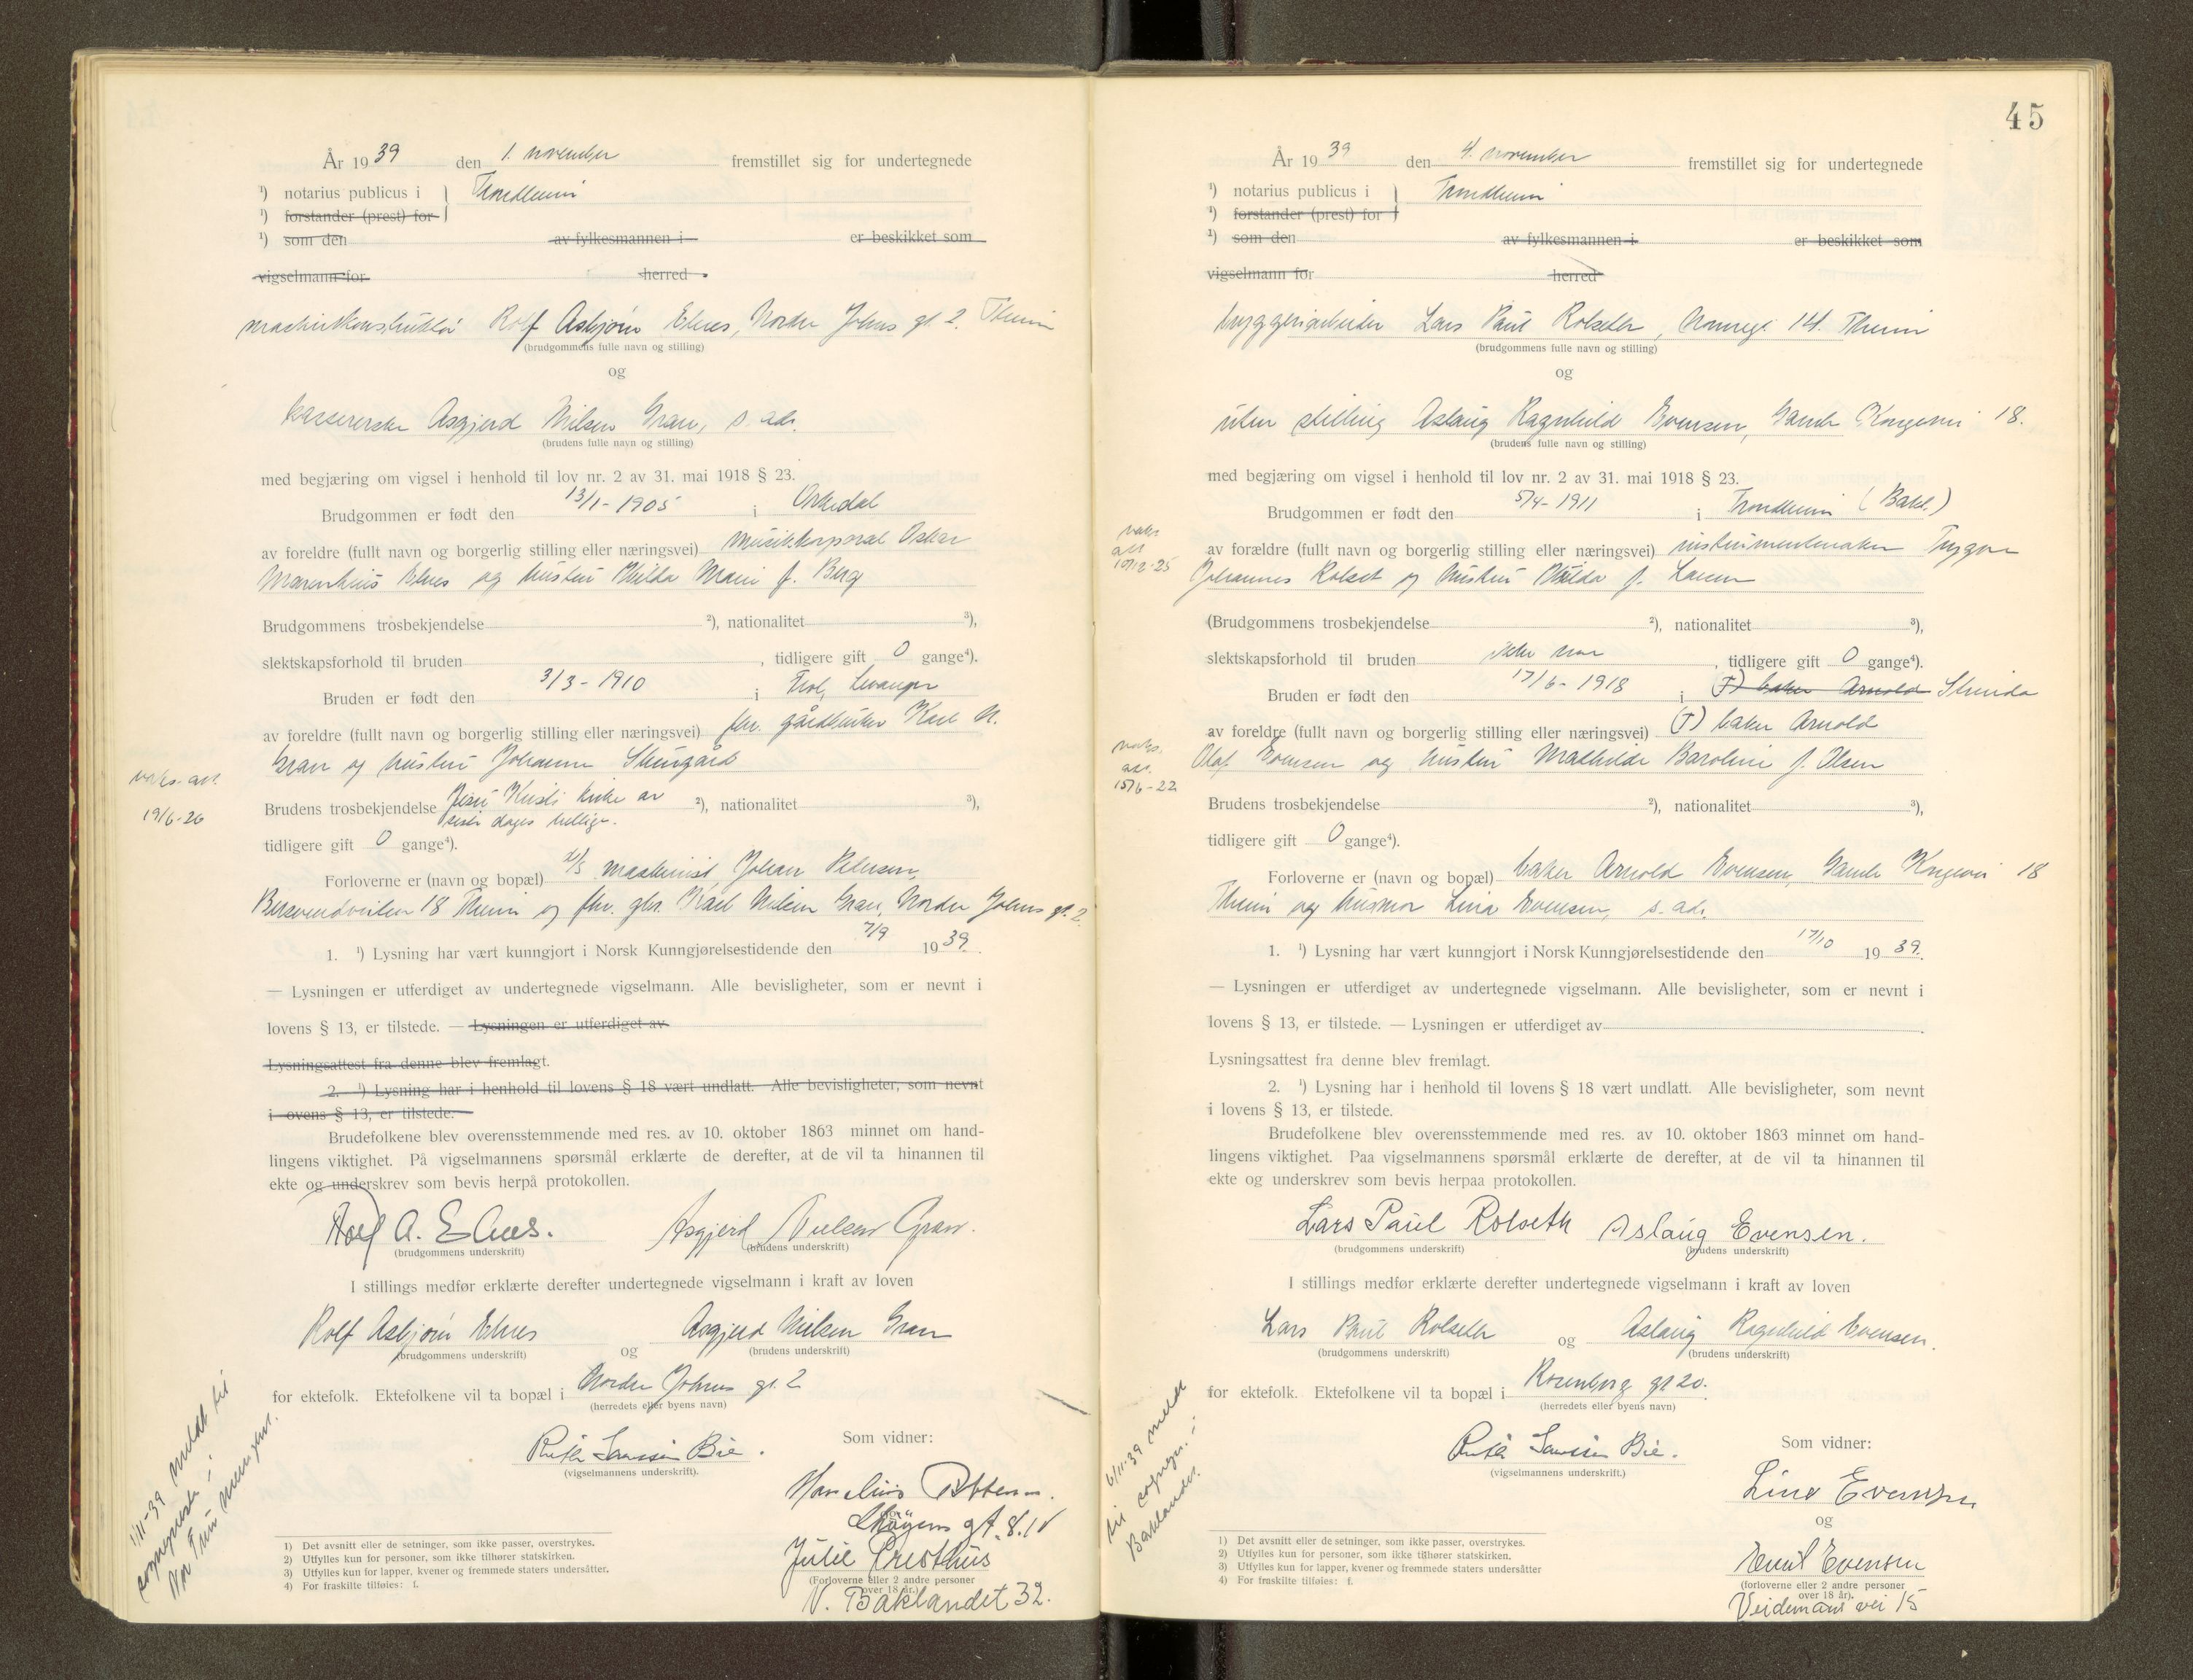 År 19 39 den 1. november fremstillet sig for undertegnede
¹) notarius publicus i } Trondheim
¹) forstander (prest) for
¹) som den av fylkesmannen i er beskikket som
vigselmann for herred
maskinkonstruktør Rolf Asbjørn Elnes, Nordre Johns gt. 2. Theim
(brudgommens fulle navn og stilling)
og
kassererske Asgjerd Nilsen Gran, s. adr.
(brudens fulle navn og stilling)
med begjæring om vigsel i henhold til lov nr. 2 av 31. mai 1918 § 23.
Brudgommen er født den 13/1-1905 i Orkedal
av foreldre (fullt navn og borgerlig stilling eller næringsvei) musikkorporal Oskar
Marenhius Elnes og hustru Hilda Marie f. Berg
Brudgommens trosbekjendelse ²), nationalitet ³),
slektskapsforhold til bruden , tidligere gift 0 gange⁴).
Bruden er født den 3/3-1910 i Levanger
av foreldre (fullt navn og borgerlig stilling eller næringsvei) fhv. gårdbruker Karl N.
Gran og hustru Johanne Stengård
vaks. att.
19/6-26
Brudens trosbekjendelse Jesu Kristi kirke av ²), nationalitet ³),
siste dages hellige.
tidligere gift 0 gange⁴).
Forloverne er (navn og bopæl) maskinist Johan Pedersen,
Bersvendveiten 18 Theim og fhv. gbr. Karl Nilsen Gran, Nordre Johns gt. 2
1. ¹) Lysning har vært kunngjort i Norsk Kunngjørelsestidende den 7/9 19 39.
— Lysningen er utferdiget av undertegnede vigselmann. Alle bevisligheter, som er nevnt i
lovens § 13, er tilstede. — Lysningen er utferdiget av
Lysningsattest fra denne blev fremlagt.
2. ¹) Lysning har i henhold til lovens § 18 vært undlatt. Alle bevisligheter, som nevnt
i lovens § 13, er tilstede.
Brudefolkene blev overensstemmende med res. av 10. oktober 1863 minnet om hand-
lingens viktighet. På vigselmannens spørsmål erklærte de derefter, at de vil ta hinannen til
ekte og underskrev som bevis herpå protokollen.
Rolf A. Elnes. Asgjerd Nielsen Gran.
(brudgommens underskrift) (brudens underskrift)
I stillings medfør erklærte derefter undertegnede vigselmann i kraft av loven
Rolf Asbjørn Elnes og Asgjerd Nielsen Gran
(brudgommens underskrift) (brudens underskrift)
for ektefolk. Ektefolkene vil ta bopæl i Nordre Johns gt. 2
(herredets eller byens navn)
Bie.
(vigselmannens underskrift).
Som vidner:
gt. 8.
Julie Presthus
(Forloverne eller 2 andre personer
over 18 år.)
N. Baklandet 32.
1/11-39 meldt til
sogneprest i
1) Det avsnitt eller de setninger, som ikke passer, overstrykes.
2) Utfylles kun for personer, som ikke tilhører statskirken.
3) Utfylles kun for lapper, kvener og fremmede staters undersåtter.
4) For fraskilte tilføies: f.
45
År 19 39 den 4. november fremstillet sig for undertegnede
¹) notarius publicus i } Trondheim
¹) forstander (prest) for
¹) som den av fylkesmannen i er beskikket som
vigselmann for herred
bryggeriarbeider Lars Paul Rolseth, 14. Theim
(brudgommens fulle navn og stilling)
og
uten stilling Aslaug Ragnhild Evensen, Gamle Kongevei 18.
(brudens fulle navn og stilling)
med begjæring om vigsel i henhold til lov nr. 2 av 31. mai 1918 § 23.
Brudgommen er født den 5/4-1911 i Trondheim (Bakl.)
vaks.
att
10/12-25
av forældre (fullt navn og borgerlig stilling eller næringsvei) instrumentmaker Trygve
Johannes Rolset og hustru f. Larsen
(Brudgommens trosbekjendelse ²), nationalitet ³),
slektskapsforhold til bruden ikke nær , tidligere gift 0 gange⁴).
Bruden er født den 17/6-1918 i (F) baker Arnold Strinda
av foreldre (fullt navn og borgerlig stilling eller næringsvei) (F) baker Arnold
vaks.
att.
15/6-22
Olaf Evensen og hustru Mathilde Baroline f. Olsen
Brudens trosbekjendelse ²), nationalitet ³),
tidligere gift 0 gange⁴).
Forloverne er (navn og bopæl) baker Arnold Evensen, Gamle Kongevei 18
Theim og husmor Lina Evensen, s. adr.
1. ¹) Lysning har vært kunngjort i Norsk Kunngjørelsestidende den 17/10 19 39.
— Lysningen er utferdiget av undertegnede vigselmann. Alle bevisligheter, som er nevnt i
lovens § 13, er tilstede. — Lysningen er utferdiget av
Lysningsattest fra denne blev fremlagt.
2. ¹) Lysning har i henhold til lovens § 18 vært undlatt. Alle bevisligheter, som nevnt
i lovens § 13, er tilstede.
Brudefolkene blev overensstemmende med res. av 10. oktober 1863 minnet om hand-
lingens viktighet. Paa vigselmannens spørsmål erklærte de derefter, at de vil ta hinannen til
ekte og underskrev som bevis herpaa protokollen.
Lars Paul Rolseth Aslaug Evensen.
(brudgommens underskrift) (brudens underskrift)
I stillings medfør erklærte derefter undertegnede vigselmann i kraft av loven
Lars Paul Rolseth og Aslaug Ragnhild Evensen.
(brudgommens underskrift) (brudens underskrift)
for ektefolk. Ektefolkene vil ta bopæl i Rosenborg gt 20.
(herredets eller byens navn)
Bie.
(vigselmannens underskrift.)
Som vidner:
Lina Evensen
og
Evensen
(forloverne eller 2 andre personer
over 18 år).
Veidemans vei 15
6/11-39 meldt
til sognepr. i
Baklandet.
1) Det avsnitt eller de setninger, som ikke passer, overstrykes.
2) Utfylles kun for personer, som ikke tilhører statskirken.
3) Utfylles kun for lapper, kvener og fremmede staters undersåtter
4) For fraskilte tilføies: f.